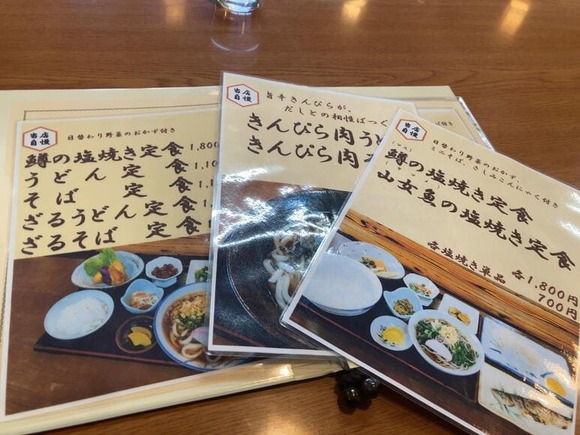 当店
自慢
日替わり野菜のおかず付き
鱒の塩焼き定食 1,800
うどん 定食
そば 定食
ざるうどん定食
ざるそば 定食
当店
自慢
旨辛きんぴらが、
だしとの相性ばつぐ
きんぴら肉う
きんぴら肉
当店
自慢
日替わり野菜のおかず
ミニそば、さしみこんにゃく付き
鱒の塩焼き定食
山女魚の塩焼き定食
各1,800円
各塩焼き単品 700円